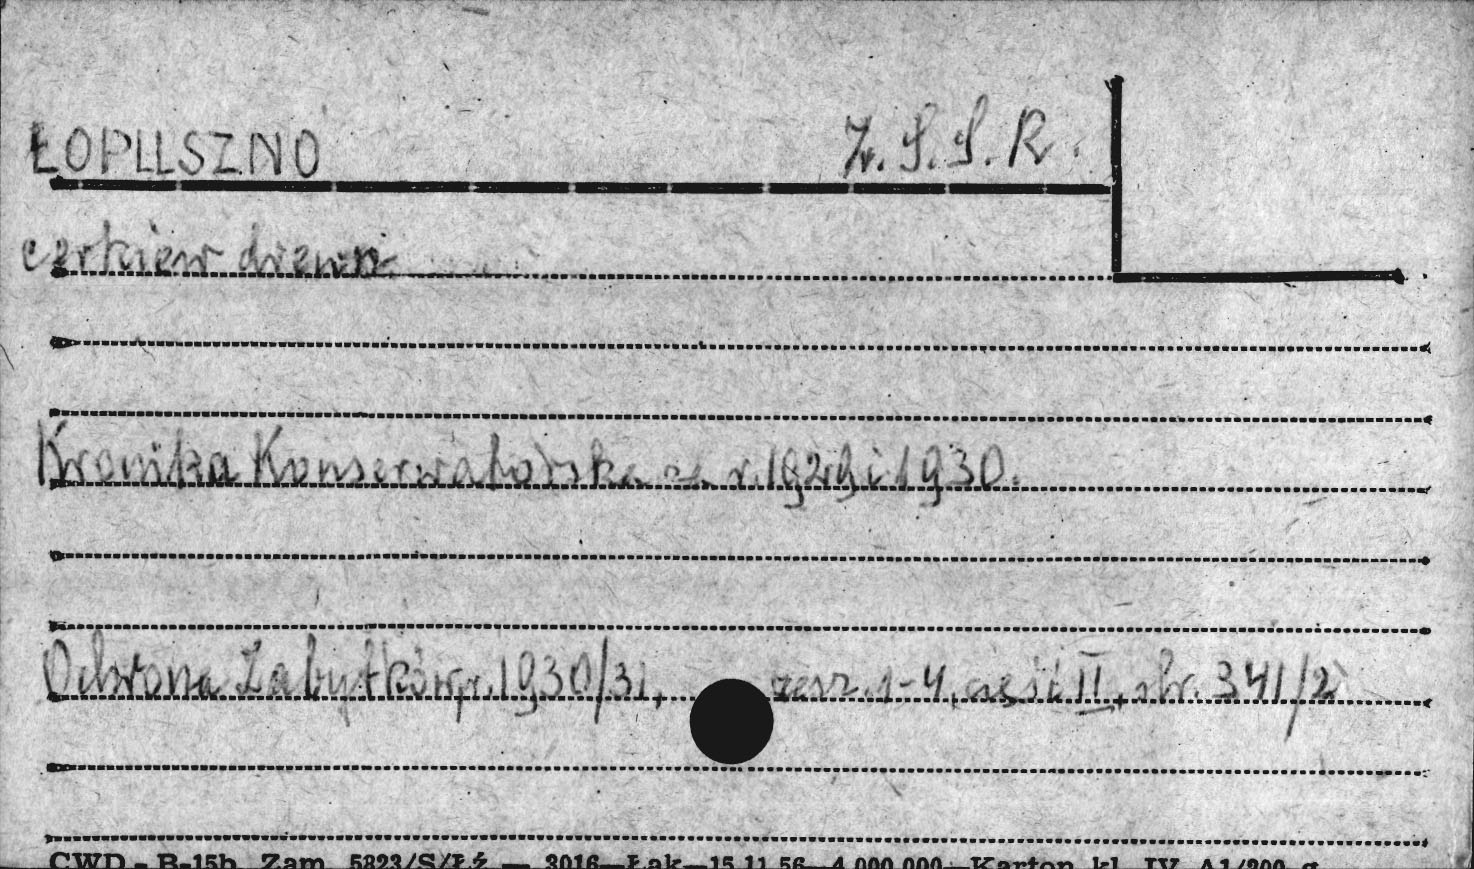 ŁOPUSZNO Z.S.S.R.
cerkiew drewn.
Kronika Konserwatorska za r. 1929 i 1930.
Ochrona Zabytków, r. 1930/31, zesz. 1-4, część II, str. 341/2
CWD - B-15b Zam. 5823/S/Łź — 3016—Łąk—15.11.56—4.000.000—Karton kl. IV A1/200 g